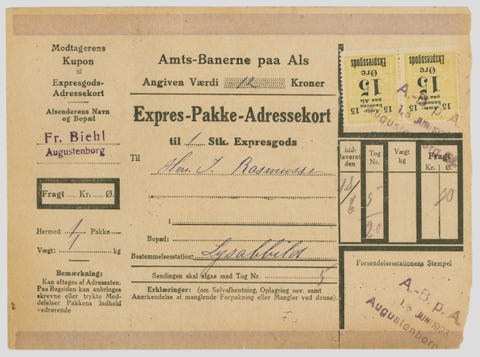 Modtagerens
Kupon
til
Expresgods-
Adressekort
Afsenderens Navn
og Bopæl
Fr. Biehl
Augustenborg
Fragt Kr. Ø.
Hermed 1 Pakke
Vægt: 1 kg
Bemærkning:
Kan aftages af Adressaten.
Paa Bagsiden kan anbringes
skrevne eller trykte Med-
delelser Pakkens indhold
vedrørende
Amts-Banerne paa Als
Angiven Værdi 12 Kroner
Expres-Pakke-Adressekort
til 1 Stk. Expresgods
Til
Hrn. J. Rasmusse
i
Bopæl:
Bestemmelsesstation: Lysabbild
Sendingen skal afgaa med Tog Nr. 5
Erklæringer: (om Selvafhentning, Oplagring osv. samt
Anerkendelse af manglende Forpakning eller Mangler ved denne).
15 15
Amtsbanerne paa Als
15
Øre
Expresgods
15 15
Amtsbanerne paa Als
15
Øre
Expresgods
A.-B. p. A.
1.6 JUNI 1923
Augustenborg
Ind-
leveret
den
Tog
Nr.
Vægt
kg
Fragt
Kr. Ø.
Forsendelsesstationens Stempel
A.-B. p. A.
1.6 JUNI 1923
Augustenborg